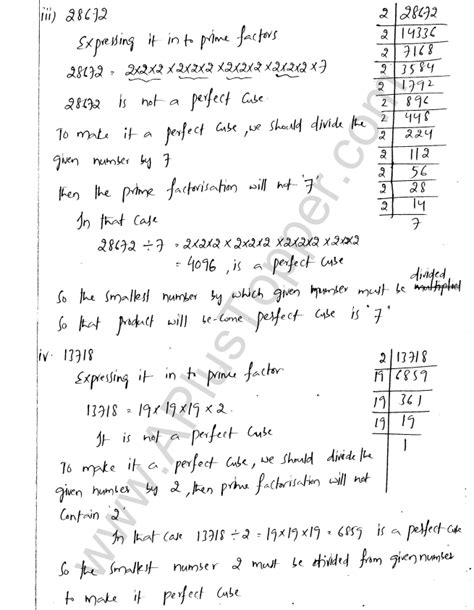 iii) 28672
Expressing it in to prime factors
28672 = 2×2×2 ×2×2×2 ×2×2×2 ×2×2×2 ×7
28672 is not a perfect Cube.
To make it a perfect Cube, we should divide the
given number by 7
then the prime factorisation will not '7'
In that case
28672 ÷ 7 = 2×2×2 ×2×2×2 ×2×2×2 ×2×2×2
= 4096, is a perfect cube
So the smallest number by which given number must be divided
So that product will be-come perfect cube is '7'
2 28672
2 14336
2 7168
2 3584
2 1792
2 896
2 448
2 224
2 112
2 56
2 28
2 14
7
iv. 13718
Expressing it in to prime factor
13718 = 19×19×19×2.
It is not a perfect Cube
To make it a perfect Cube, we should divide the
given number by 2, then prime factorisation will not
Contain '2'
In that case 13718 ÷ 2 = 19×19×19 = 6859 is a perfect cube
So the smallest number 2 must be divided from given number
to make it perfect cube
2 13718
19 6859
19 361
19 19
1
www.APlusTopper.com